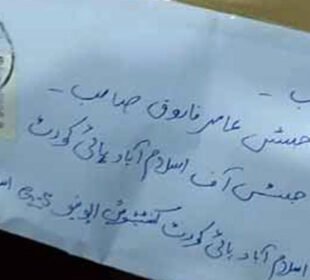 ب -
جسٹس عامر فاروق صاحب -
جسٹس آف اسلام آباد ہائی کورٹ
اسلام آباد ہائی کورٹ کنسٹیٹیوشن ایونیو